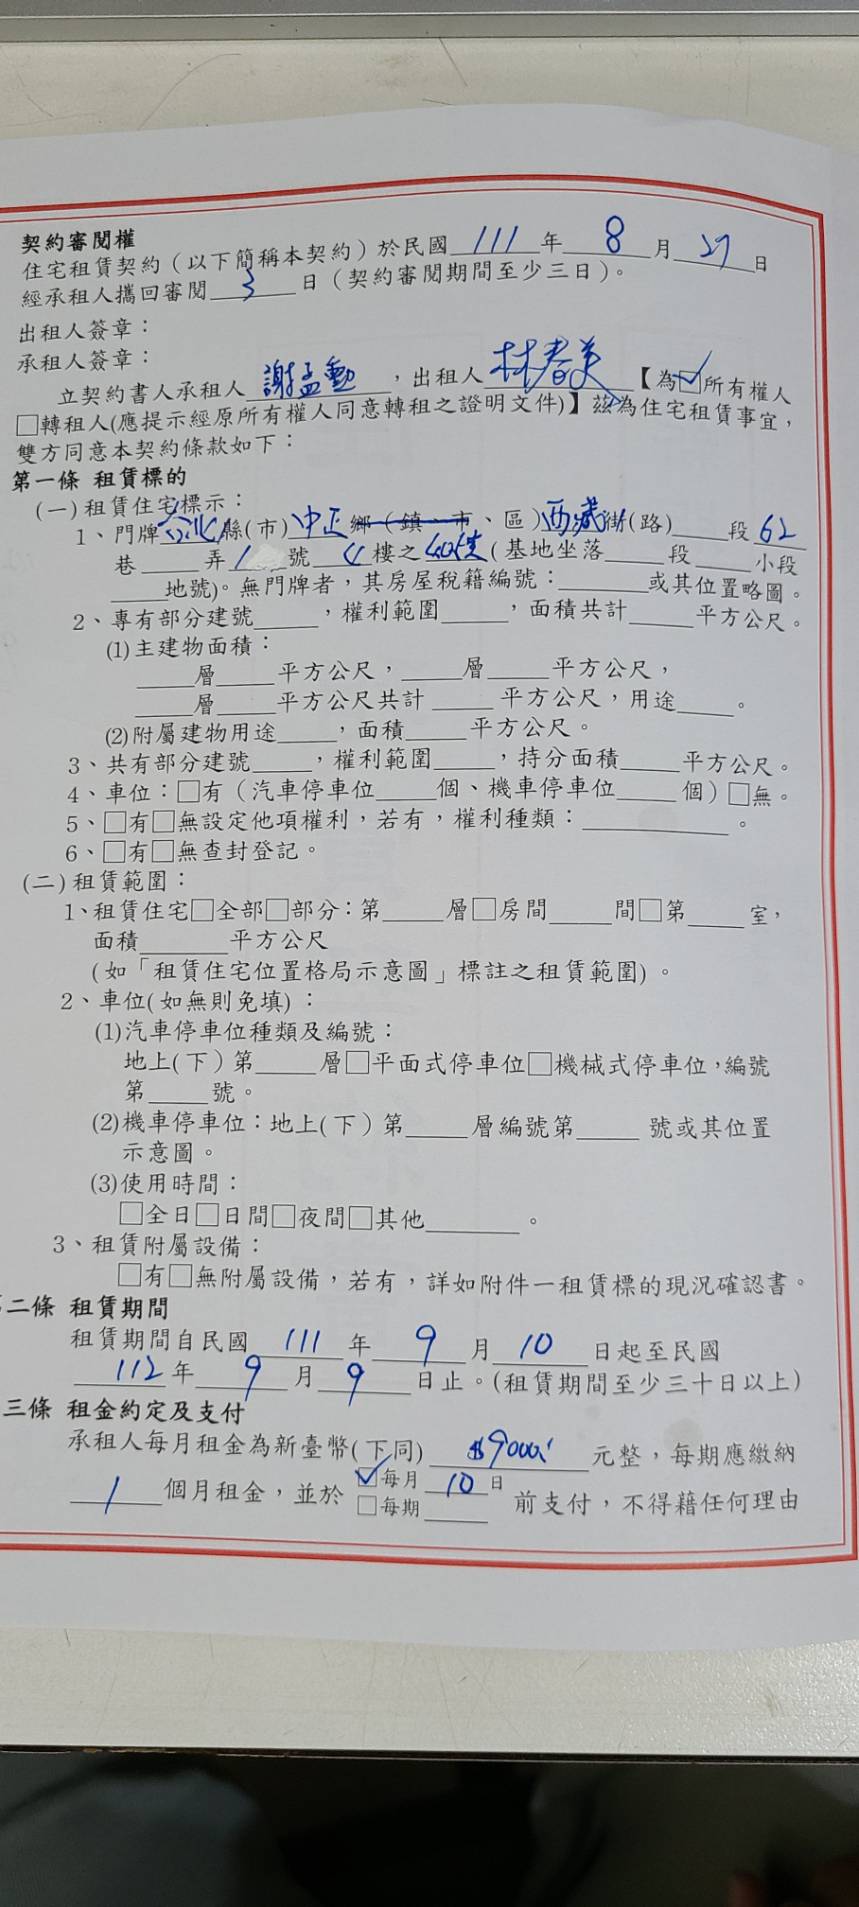 契約審閱權
住宅租賃契約（以下簡稱本契約）於民國 111 年 8 月 27 日
經承租人攜回審閱 3 日（契約審閱期間至少三日）。
出租人簽章：
承租人簽章：
立契約書人承租人 謝孟勳 ，出租人 林春美 【為☑所有權人
□轉租人(應提示經原所有權人同意轉租之證明文件)】茲為住宅租賃事宜，
雙方同意本契約條款如下：
第一條 租賃標的
(一)租賃住宅標示：
1、門牌 台北 縣(市) 中正 鄉（鎮、市、區） 西藏 街(路)____段 62
巷____弄 1 號 4 樓之 (基地坐落____段____小段
____地號)。無門牌者，其房屋稅籍編號：____或其位置略圖。
2、專有部分建號____，權利範圍____，面積共計____平方公尺。
(1)主建物面積：
____層____平方公尺，____層____平方公尺，
____層____平方公尺共計____平方公尺，用途____。
(2)附屬建物用途____，面積____平方公尺。
3、共有部分建號____，權利範圍____，持分面積____平方公尺。
4、車位：□有（汽車停車位____個、機車停車位____個）□無。
5、□有□無設定他項權利，若有，權利種類：________。
6、□有□無查封登記。
(二)租賃範圍：
1、租賃住宅□全部□部分：第____層□房間____間□第____室，
面積____平方公尺
(如「租賃住宅位置格局示意圖」標註之租賃範圍)。
2、車位(如無則免填)：
(1)汽車停車位種類及編號：
地上(下)第____層□平面式停車位□機械式停車位，編號
第____號。
(2)機車停車位：地上(下)第____層編號第____號或其位置
示意圖。
(3)使用時間：
□全日□日間□夜間□其他____。
3、租賃附屬設備：
□有□無附屬設備，若有，詳如附件一租賃標的現況確認書。
二條 租賃期間
租賃期間自民國 111 年 9 月 10 日起至民國
112 年 9 月 9 日止。(租賃期間至少三十日以上)
三條 租金約定及支付
承租人每月租金為新臺幣(下同) $9000 元整，每期應繳納
1 個月租金，並於 ☑每月 10 日
□每期____ 前支付，不得藉任何理由